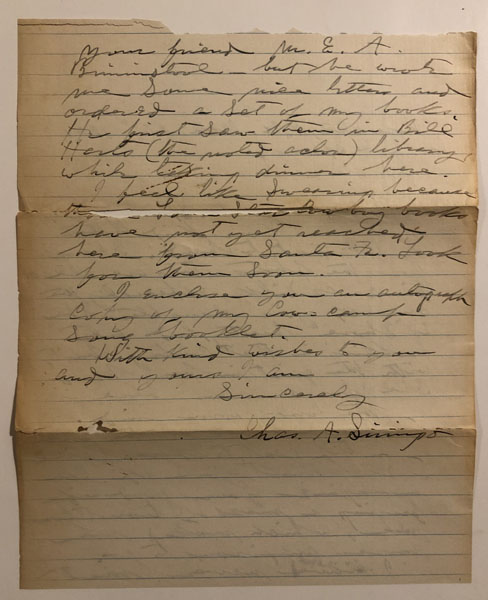 your friend M. E. A.
– but he wrote
me some nice letters and
ordered a set of my books.
He first saw them in Bill
Harts (the noted actor) library
while eating dinner here.
I feel like swearing because
the Lone Star Cowboy books
have not yet reached
here from Santa Fe. Look
for them soon.
I enclose you an autograph
copy of my Cow-camp
Song booklet.
With kind wishes to you
and yours, am
Sincerely
Chas. A. Siringo